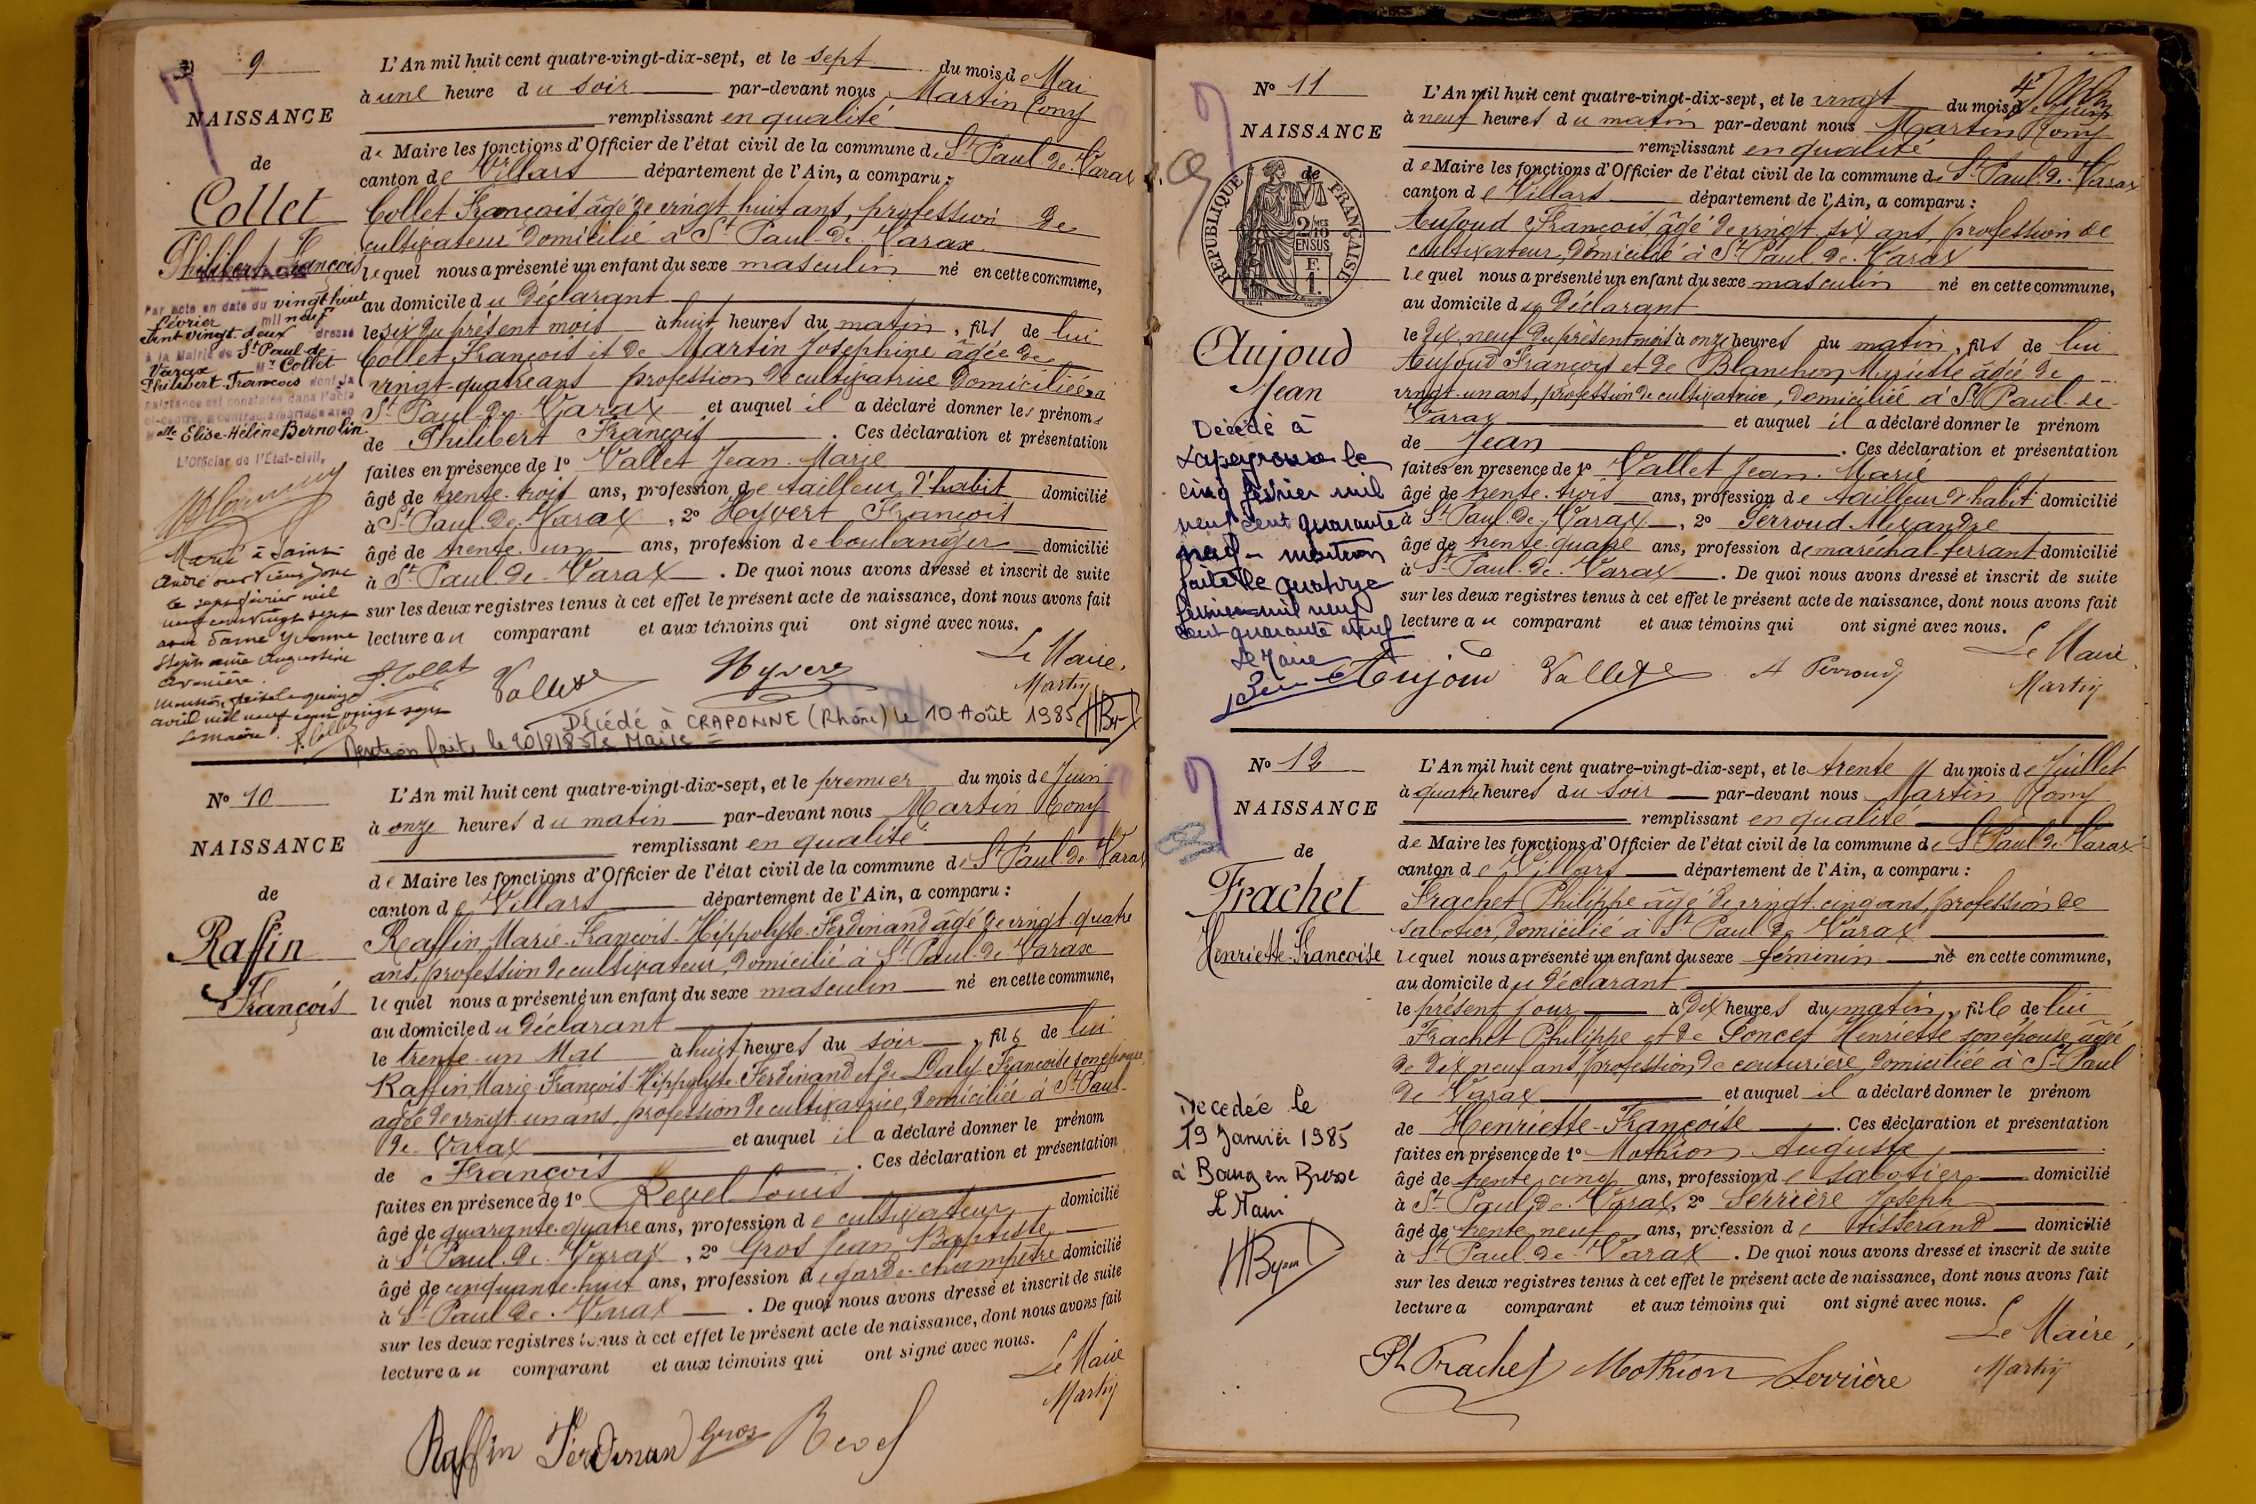 9
L'An mil huit cent quatre-vingt-dix-sept, et le sept du mois de Mai
à une heure du soir par-devant nous Martin Rony
remplissant en qualité
de Maire les fonctions d'Officier de l'état civil de la commune de St Paul-de-Varax
canton de Villars département de l'Ain, a comparu :
Collet François âgé de vingt huit ans, profession de
cultivateur domicilié à St Paul-de-Varax
lequel nous a présenté un enfant du sexe masculin né en cette commune,
au domicile du Déclarant
le six du présent mois à huit heures du matin, fils de lui
Collet François et de Martin Joséphine âgée de
vingt-quatre ans profession de cultivatrice domiciliée à
St Paul-de-Varax et auquel il a déclaré donner les prénoms
de Philibert François . Ces déclaration et présentation
faites en présence de 1° Vallet Jean-Marie
âgé de trente-trois ans, profession de tailleur d'habit domicilié
à St Paul-de-Varax, 2° Hyvert François
âgé de trente-un ans, profession de boulanger domicilié
à St Paul-de-Varax. De quoi nous avons dressé et inscrit de suite
sur les deux registres tenus à cet effet le présent acte de naissance, dont nous avons fait
lecture au comparant et aux témoins qui ont signé avec nous.
Le Maire,
F. Collet Vallet Hyvert Martin
Décédé à CRAPONNE (Rhône) le 10 Août 1985
Mention faite le 20/8/85 le Maire
NAISSANCE
de
Collet
Philibert François
Par acte en date du vingt huit
février mil neuf
cent vingt-deux dressé
à la Mairie de St Paul de
Varax Mr Collet
Philibert François dont la
naissance est constatée dans l'acte
ci-contre, a contracté mariage avec
Mlle Elise-Hélène Bernolin
L'Officier de l'État-civil,
Marié à Saint-
André sur Vieux Jonc
le sept février mil
neuf cent vingt sept
avec Dame Yvonne
Stéphanie Augustine
Mention faite le quinze
avril mil neuf cent vingt sept
Le Maire F. Collet
N° 10
NAISSANCE
de
Raffin
François
L'An mil huit cent quatre-vingt-dix-sept, et le premier du mois de Juin
à onze heures du matin par-devant nous Martin Rony
remplissant en qualité
de Maire les fonctions d'Officier de l'état civil de la commune de St Paul-de-Varax
canton de Villars département de l'Ain, a comparu :
Raffin Marie-François-Hippolyte-Ferdinand âgé de vingt-quatre
ans, profession de cultivateur, domicilié à St Paul-de-Varax
lequel nous a présenté un enfant du sexe masculin né en cette commune,
au domicile du Déclarant
le trente-un Mai à huit heures du soir, fils de lui
Raffin Marie François-Hippolyte-Ferdinand et de Daly Françoise son épouse
âgée de vingt-un ans, profession de cultivatrice, domiciliée à St Paul-
de-Varax et auquel il a déclaré donner le prénom
de François . Ces déclaration et présentation
faites en présence de 1° Revel Louis
âgé de quarante-quatre ans, profession de cultivateur domicilié
à St Paul-de-Varax, 2° Gros Jean Baptiste
âgé de cinquante-huit ans, profession de garde-champêtre domicilié
à St Paul-de-Varax. De quoi nous avons dressé et inscrit de suite
sur les deux registres tenus à cet effet le présent acte de naissance, dont nous avons fait
lecture au comparant et aux témoins qui ont signé avec nous.
Le Maire
Martin
Raffin Ferdinand Gros Revel
N° 11
NAISSANCE
de
RÉPUBLIQUE FRANÇAISE
2/10 EN SUS
F. 1.
Aujoud
Jean
Décédé à
Lapeyrouse le
cinq février mil
neuf cent quarante
neuf - mention
faite le quatorze
février mil neuf
cent quarante neuf
Le Maire
L'An mil huit cent quatre-vingt-dix-sept, et le vingt du mois de
à neuf heures du matin par-devant nous Martin Rony
remplissant en qualité
de Maire les fonctions d'Officier de l'état civil de la commune de St Paul-de-Varax
canton de Villars département de l'Ain, a comparu :
Aujoud François, âgé de vingt-six ans, profession de
cultivateur, domicilié à St Paul-de-Varax
lequel nous a présenté un enfant du sexe masculin né en cette commune,
au domicile du Déclarant
le dix neuf du présent mois à onze heures du matin, fils de lui
Aujoud François et de Blanchon Mariette âgée de
vingt-un ans, profession de cultivatrice, domiciliée à St Paul-de-
Varax et auquel il a déclaré donner le prénom
de Jean . Ces déclaration et présentation
faites en présence de 1° Vallet Jean-Marie
âgé de trente-trois ans, profession de tailleur d'habit domicilié
à St Paul-de-Varax, 2° Perroud Alexandre
âgé de trente-quatre ans, profession de maréchal-ferrant domicilié
à St Paul-de-Varax. De quoi nous avons dressé et inscrit de suite
sur les deux registres tenus à cet effet le présent acte de naissance, dont nous avons fait
lecture au comparant et aux témoins qui ont signé avec nous.
Le Maire
Aujoud Vallet A Perroud Martin
N° 12
NAISSANCE
de
Frachet
Henriette-Françoise
Décédée le
19 Janvier 1985
à Bourg en Bresse
Le Maire
L'An mil huit cent quatre-vingt-dix-sept, et le trente du mois de Juillet
à quatre heures du soir par-devant nous Martin Rony
remplissant en qualité
de Maire les fonctions d'Officier de l'état civil de la commune de St Paul-de-Varax
canton de Villars département de l'Ain, a comparu :
Frachet Philippe âgé de vingt-cinq ans, profession de
sabotier, domicilié à St Paul-de-Varax
lequel nous a présenté un enfant du sexe féminin né en cette commune,
au domicile du Déclarant
le présent jour à dix heures du matin, fille de lui
Frachet Philippe et de Poncet Henriette son épouse âgée
de dix neuf ans, profession de couturière, domiciliée à St Paul
de Varax et auquel il a déclaré donner le prénom
de Henriette-Françoise . Ces déclaration et présentation
faites en présence de 1° Mothion Auguste
âgé de trente-cinq ans, profession de sabotier domicilié
à St Paul-de-Varax, 2° Serrière Joseph
âgé de trente-neuf ans, profession de tisserand domicilié
à St Paul-de-Varax. De quoi nous avons dressé et inscrit de suite
sur les deux registres tenus à cet effet le présent acte de naissance, dont nous avons fait
lecture a comparant et aux témoins qui ont signé avec nous.
Le Maire,
Ph Frachet Mothion Serrière Martin